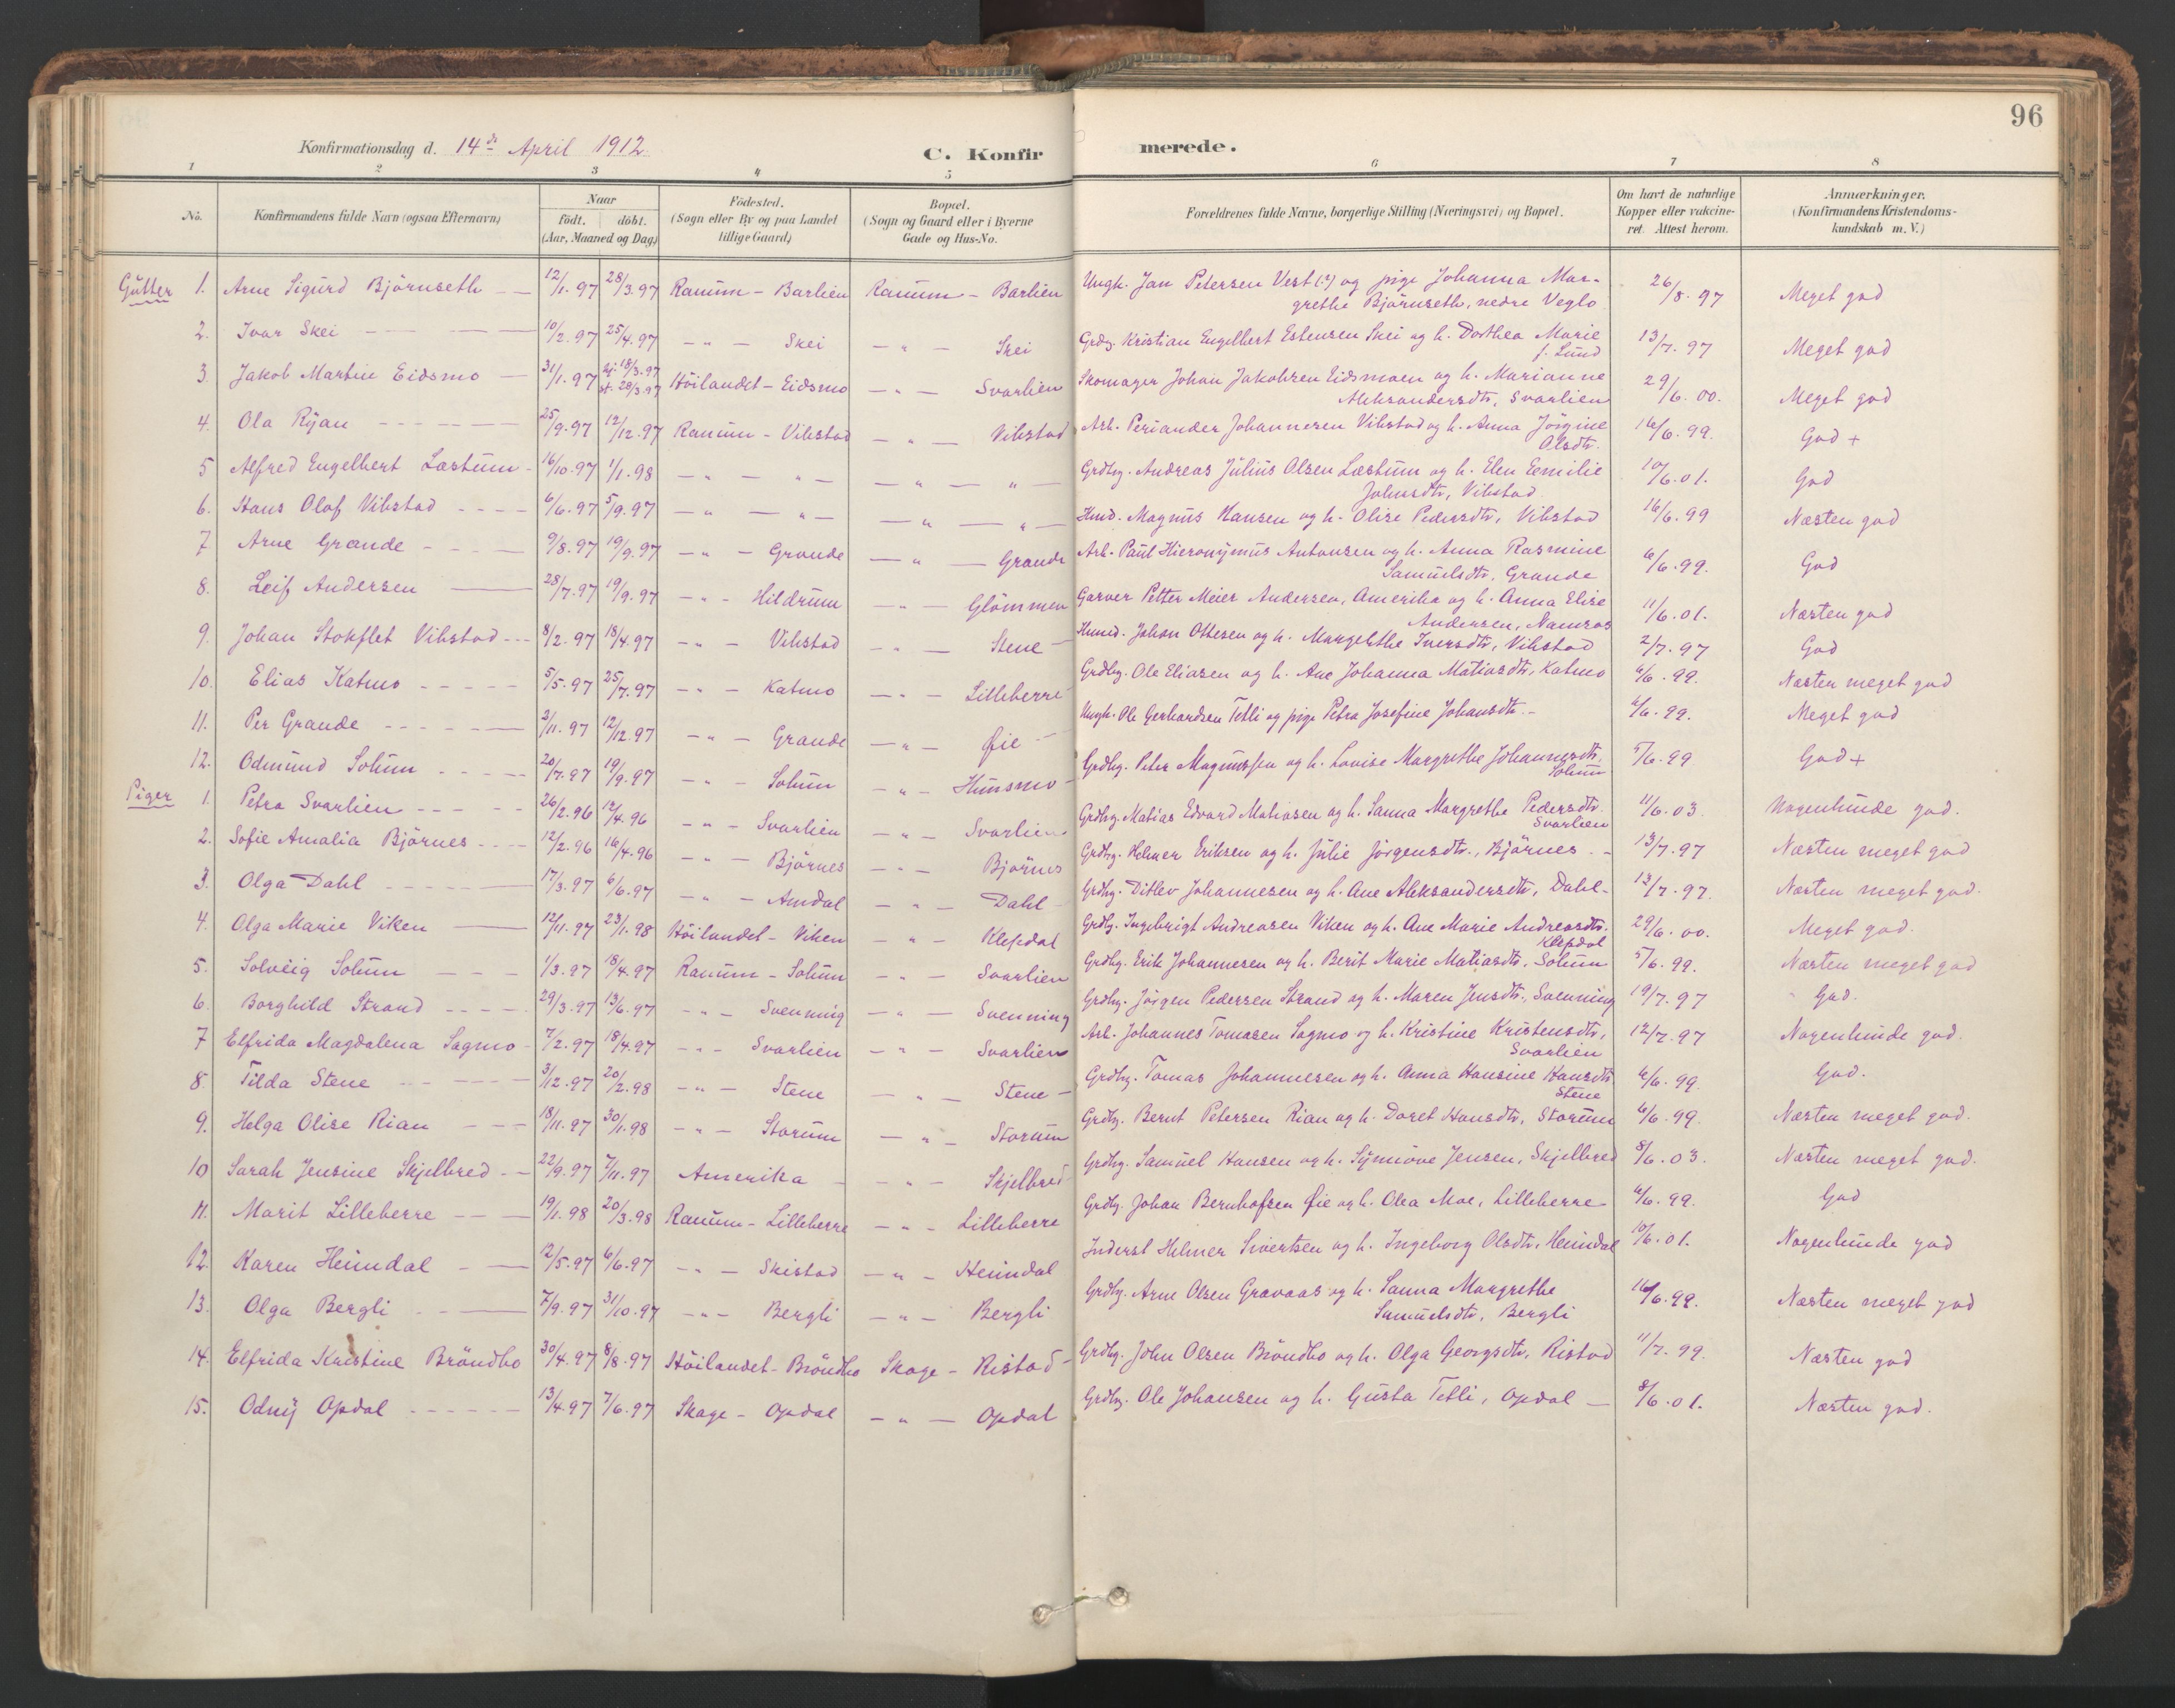 96
Konfirmationsdag d. 14de April 1912.
C. Konfirmerede.
1 2 3 4 5 6 7 8
No. | Konfirmandens fulde Navn (ogsaa Efternavn) | Naar födt. döbt. (Aar, Maaned og Dag.) | Födested. (Sogn eller By og paa Landet tillige Gaard.) | Bopæl. (Sogn og Gaard eller i Byerne Gade og Hus-No. | Forældrenes fulde Navne, borgerlige Stilling (Næringsvei) og Bopæl. | Om havt de naturlige Kopper eller vakcineret. Attest herom. | Anmærkninger. (Konfirmandens Kristendomskundskab m. V.)
Gutter 1. Arne Sigurd Björnseth | 12/1.97 | 28/3.97 | Ranum - Barlien | Ranum - Barlien | Ungk. Jan Petersen Vest (?) og pige Johanna Margrethe Björnseth, nedre Veglo | 26/8.97 | Meget god
2. Ivar Skei | 10/2.97 | 25/4.97 | -"- Skei | -"- Skei | Grdbg. Kristian Engelbert Estensen Skei og h. Dorthea Marie f. Lund | 13/7.97 | Meget god
3. Jakob Martin Eidsmo | 31/1.97 | hj. 18/3.97 st. 28/3.97 | Höilandet - Eidsmo | -"- Svarlien | Skomager Johan Jakobsen Eidsmoen og h. Marianne Aleksandersdtr, Svarlien | 29/6.00. | Meget god
4. Ola Ryan | 25/9.97 | 12/12.97 | Ranum - Vibstad | -"- Vibstad | Arb. Periander Johannesen Vibstad og h. Anna Jörgine Olsdtr. | 16/6.99. | God +
5 Alfred Engelbert Læstum | 16/10.97 | 1/1.98 | -"- -"- | -"- -"- | Grdbg. Andreas Julius Olsen Læstum og h. Elen Emilie Johnsdtr, Vibstad | 10/6.01. | God
6. Hans Olaf Vibstad | 6/6.97 | 5/9.97 | -"- -"- | -"- -"- | Hmd. Magnus Hansen og h. Olise Pedersdtr, Vibstad | 16/6.99 | Næsten god
7 Arne Grande | 9/8.97 | 19/9.97 | -"- Grande | -"- Grande | Arb. Paul Hieronymus Antonsen og h. Anna Rasmine Samuelsdtr, Grande | 6/6.99. | God
8. Leif Andersen | 28/7.97 | 19/9.97 | -"- Hildrum | -"- Glömmen | Garver Petter Meier Andersen, Amerika og h. Anna Elise Andersen, Namsos | 11/6.01. | Næsten god
9. Johan Stokflet Vibstad | 8/2.97 | 18/4.97 | -"- Vibstad | -"- Stene | Husmd. Johan Ottesen og h. Margrethe Iversdtr, Vibstad | 2/7.97 | God
10. Elias Katmo | 5/5.97 | 25/7.97 | -"- Katmo | -"- Lilleberre | Grdbg. Ole Eliasen og h. Ane Johanna Matiasdtr, Katmo | 6/6.99. | Næsten meget god
11. Per Grande | 3/11.97 | 12/12.97 | -"- Grande | -"- Øie | Ungk. Ole Gerhardsen Tetli og pige Petra Josefine Johansdtr. | 6/6.99. | Meget god
12. Odmund Solum | 20/7.97 | 19/9.97 | -"- Solum | -"- Hunsmo | Grdbg. Peter Magnussen og h. Lovise Margrethe Johannesdtr. Solum | 5/6.99 | God +
Piger 1. Petra Svarlien | 26/2.96 | 12/4.96 | -"- Svarlien | -"- Svarlien | Grdbg. Matias Edvard Matiasen og h. Sanna Margrethe Pedersdtr. Svarlien | 11/6.03 | Nogenlunde god.
2. Sofie Amalia Björnes | 12/2.96 | 16/4.96 | -"- Björnes | -"- Björnes | Grdbg. Helmer Eriksen og h. Julie Jörgensdtr., Björnes | 13/7.97 | Næsten meget god
3. Olga Dahl | 17/3.97 | 6/6.97 | -"- Amdal | -"- Dahl | Grdbg. Ditlev Johannesen og h. Ane Aleksandersdtr, Dahl | 13/7.97. | Næsten meget god.
4. Olga Marie Viken | 12/11.97 | 23/1.98 | Höilandet - Viken | -"- Klepdal | Grdbg. Ingebrigt Andreasen Viken og h. Ane Marie Andreasdtr. Klepdal | 29/6.00. | Meget god.
5. Solveig Solum | 1/3.97 | 18/4.97 | Ranum - Solum | -"- Svarlien | Grdbg. Erik Johannesen og h. Berit Marie Matiasdtr, Solum | 5/6.99. | Næsten meget god
6. Borghild Strand | 29/3.97 | 13/6.97 | -"- Svenning | -"- Svenning | Grdbg. Jörgen Pedersen Strand og h. Maren Jensdtr, Svenning | 19/7.97 | God.
7 Elfrida Magdalena Sagmo | 7/2.97 | 18/4.97 | -"- Svarlien | -"- Svarlien | Arb. Johannes Tomasen Sagmo og h. Kristine Kristensdtr, Svarlien | 12/7.97 | Nogenlunde god.
8 Tilda Stene | 3/12.97 | 20/2.98 | -"- Stene | -"- Stene | Grdbg. Tomas Johannesen og h. Anna Hansine Hansdtr Stene | 6/6.99. | God.
9. Helga Olise Rian | 18/11.97 | 30/1.98 | -"- Storum | -"- Storum | Grdbg. Bernt Petersen Rian og h. Doret Hansdtr, Storum | 6/6.99. | Næsten meget god.
10 Sarah Jensine Skjelbred | 22/9.97 | 7/11.97 | Amerika | -"- Skjelbred | Grdbg. Samuel Hansen og h. Synnöve Jensen, Skjelbred | 8/6.03. | Næsten meget god.
11. Marit Lilleberre | 19/1.98 | 20/3.98 | Ranum - Lilleberre | -"- Lilleberre | Grdbg. Johan Bernhofsen Øie og h. Olea Moe, Lilleberre | 6/6.99. | God
12. Karen Heimdal | 12/5.97 | 6/6.97 | -"- Skistad | -"- Heimdal | Inderst Helmer Sivertsen og h. Ingeborg Olsdtr, Heimdal | 10/6.01. | Nogenlunde god
13. Olga Bergli | 7/9.97 | 31/10.97 | -"- Bergli | -"- Bergli | Grdbg. Arne Olsen Gravaas og h. Sanna Margrethe Samuelsdtr, Bergli | 16/6.99. | Næsten meget god
14. Elfrida Kristine Bröndbo | 30/4.97 | 8/8.97 | Höilandet - Bröndbo | Skage - Ristad | Grdbg. John Olsen Bröndbo og h. Olga Georgsdtr, Ristad | 11/7.99. | Næsten god
15. Odny Opdal | 13/4.97 | 7/6.97 | Skage - Opdal | -"- Opdal | Grdbg. Ole Johansen og h. Gusta Tetli, Opdal | 8/6.01. | Næsten god.